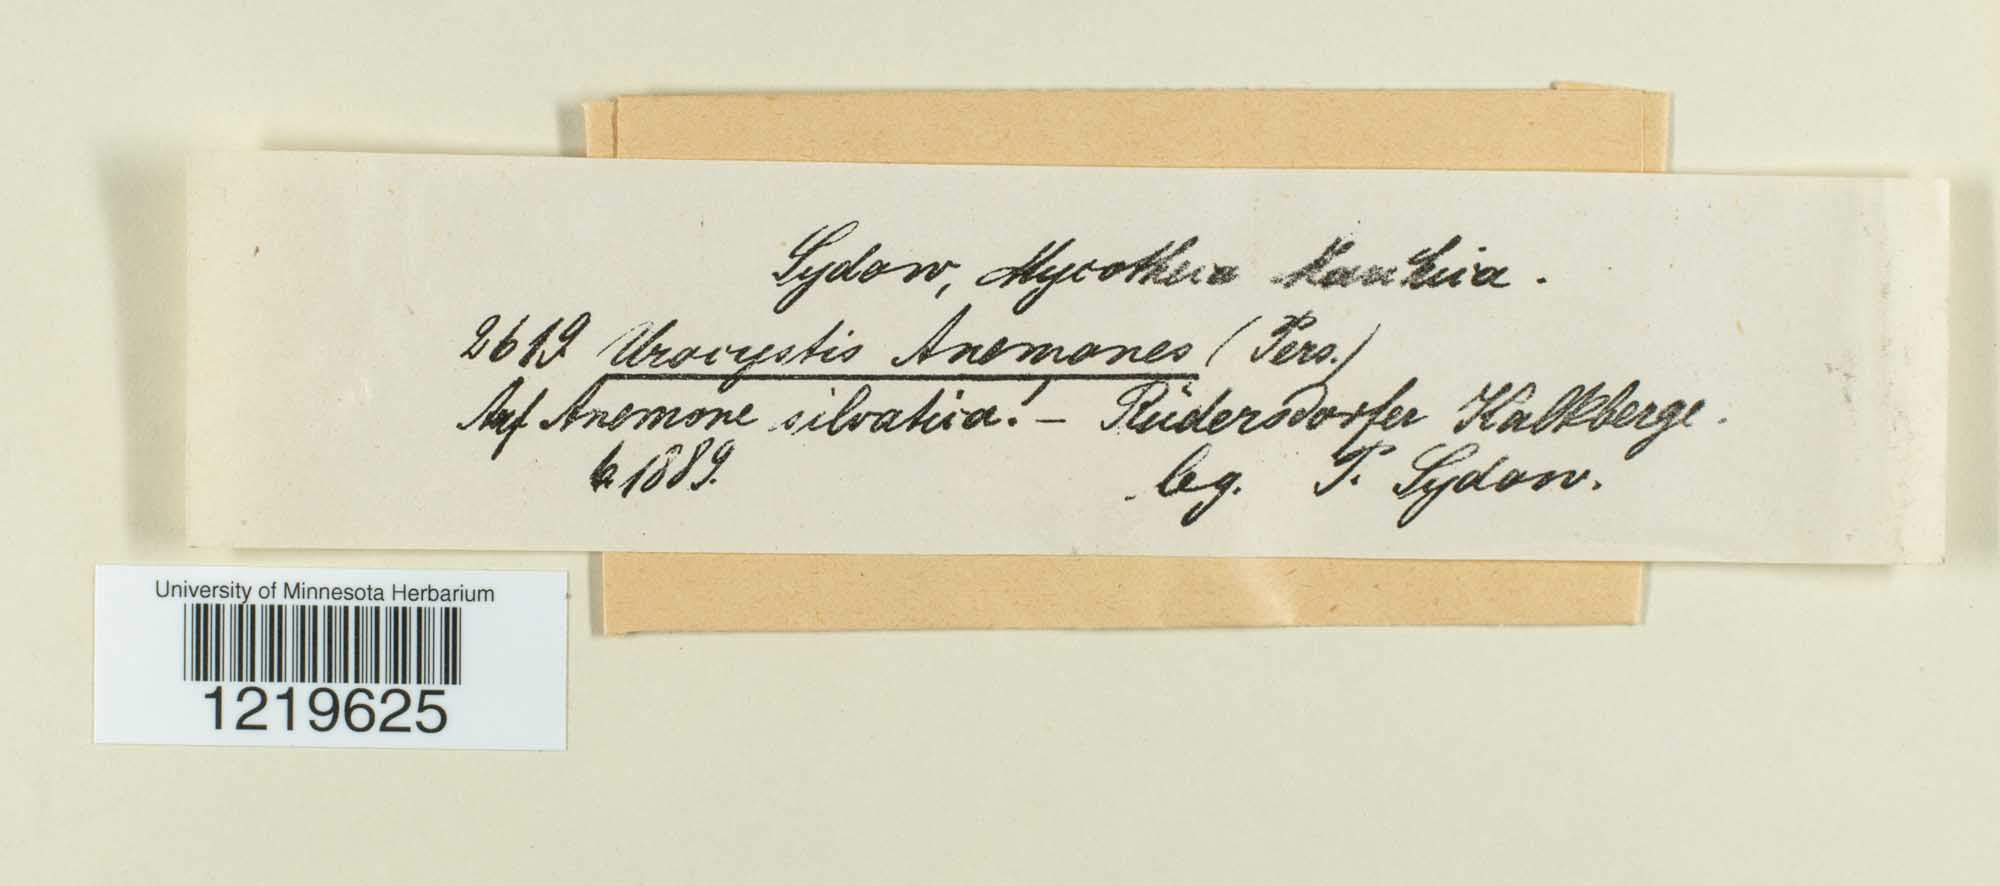 Sydow, Mycotheca Marchica.
2619 Urocystis Anemones (Pers.)
Auf Anemone silvatica! – Rüdersdorfer Kalkberge.
6.1889. leg. P. Sydow.
University of Minnesota Herbarium
1219625